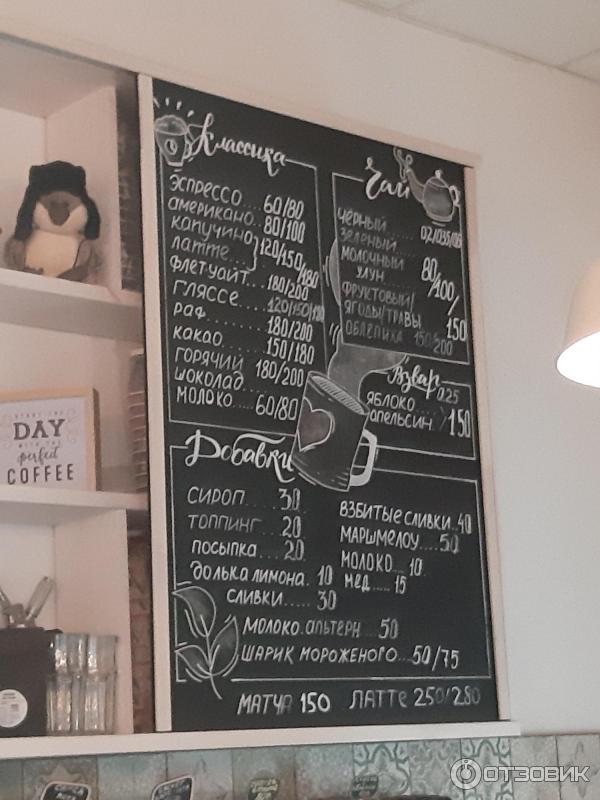 Классика
ЭСПРЕССО...60/80
АМЕРИКАНО..80/100
КАПУЧИНО
ЛАТТЕ...} 120/150/180
ФЛЕТУАЙТ. 180/200
ГЛЯССЕ...
РАФ....180/200
КАКАО....150/180
ГОРЯЧИЙ
ШОКОЛАД 180/200
МОЛОКО.....60/80
Чай
ЧЁРНЫЙ......
ЗЕЛЁНЫЙ.....
МОЛОЧНЫЙ
УЛУН....
80/100/150
ФРУКТОВЫЙ/
ЯГОДЫ/ТРАВЫ
ОБЛЕПИХА 150/200
Взвар 0,25
ЯБЛОКО
АПЕЛЬСИН.
150
Добавки
СИРОП.....30
ТОППИНГ...20
ПОСЫПКА...20
ДОЛЬКА ЛИМОНА. 10
СЛИВКИ..... 30
ВЗБИТЫЕ СЛИВКИ..40
МАРШМЕЛОУ....50
МОЛОКО... 10
МЕД ..... 15
МОЛОКО. АЛЬТЕРН ...50
ШАРИК МОРОЖЕНОГО...50/75
МАТЧА 150 ЛАТТЕ 250/280
DAY
perfect
COFFEE
ОТЗОВИК